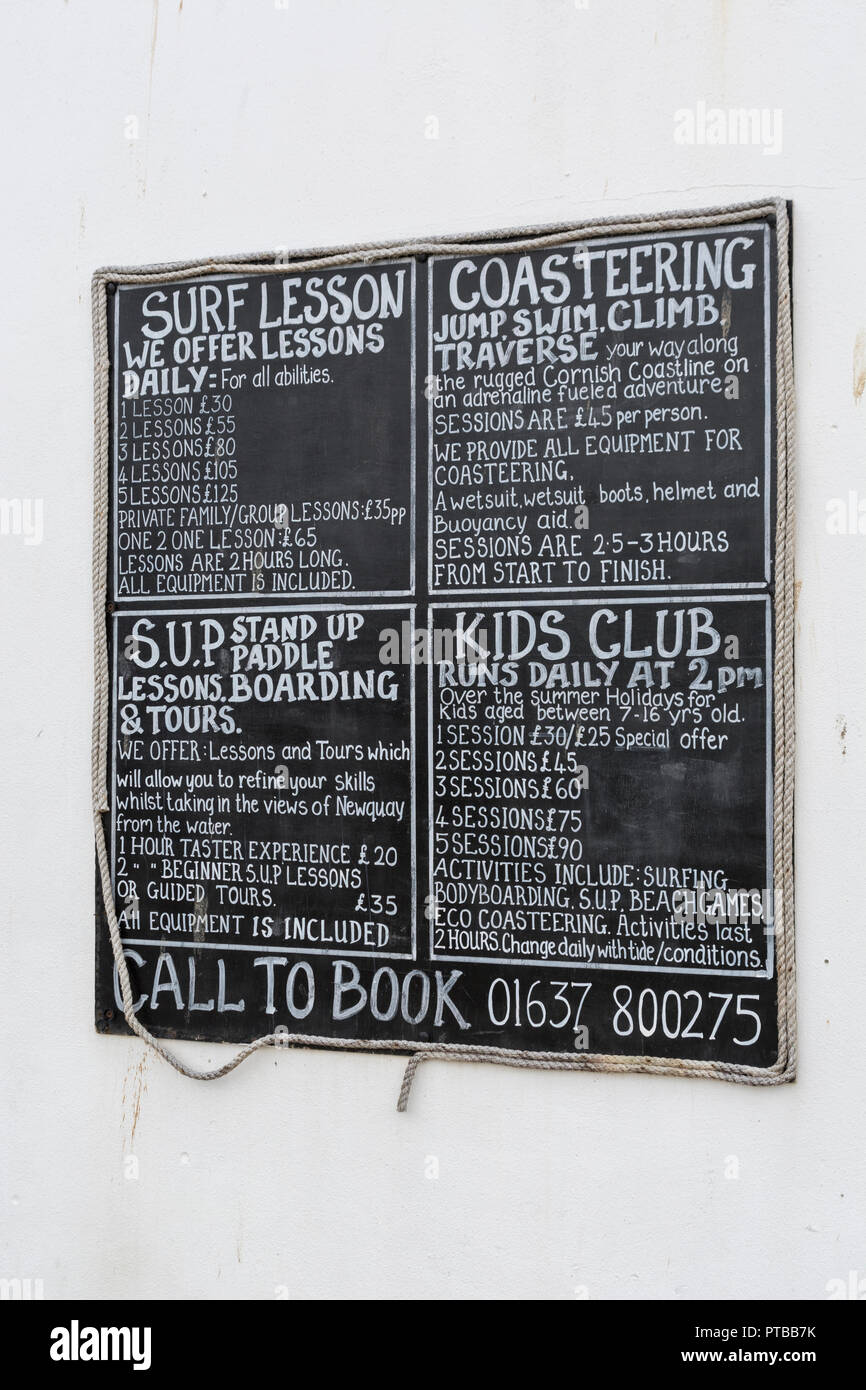 SURF LESSON
WE OFFER LESSONS
DAILY:- For all abilities.
1 LESSON £30
2 LESSONS £55
3 LESSONS £80
4 LESSONS £105
5 LESSONS £125
PRIVATE FAMILY/GROUP LESSONS:£35pp
ONE 2 ONE LESSON:£65
LESSONS ARE 2 HOURS LONG.
ALL EQUIPMENT IS INCLUDED.
COASTEERING
JUMP, SWIM, CLIMB,
TRAVERSE your way along
the rugged Cornish Coastline on
an adrenaline fueled adventure
SESSIONS ARE £45 per person.
WE PROVIDE ALL EQUIPMENT FOR
COASTEERING,
A wetsuit, wetsuit boots, helmet and
Buoyancy aid.
SESSIONS ARE 2·5-3 HOURS
FROM START TO FINISH.
S.U.P STAND UP
PADDLE
LESSONS, BOARDING
& TOURS.
WE OFFER: Lessons and Tours which
will allow you to refine your skills
whilst taking in the views of Newquay
from the water.
1 HOUR TASTER EXPERIENCE £20
2 " " BEGINNER S.U.P LESSONS
OR GUIDED TOURS. £35
All EQUIPMENT IS INCLUDED
KIDS CLUB
RUNS DAILY AT 2pm
Over the summer Holidays for
Kids aged between 7-16 yrs old.
1 SESSION £30/£25 Special offer
2 SESSIONS £45
3 SESSIONS £60
4 SESSIONS £75
5 SESSIONS £90
ACTIVITIES INCLUDE: SURFING,
BODYBOARDING, S.U.P, BEACH GAMES,
ECO COASTEERING. Activities last
2 HOURS. Change daily with tide/conditions.
CALL TO BOOK 01637 800275
alamy
Image ID: PTBB7K
www.alamy.com